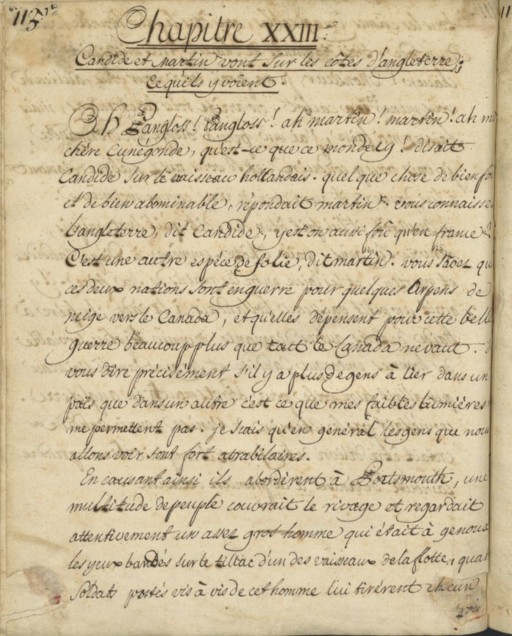 115
Chapitre XXIII.
Candide et martin vont sur les côtes d'angleterre;
ce qu'ils y voient.
Ah Pangloss! Pangloss! ah martin! martin! ah m
chère Cunegonde, qu'est-ce que ce monde cy! disait
Candide sur le vaisseau hollandais. quelque chose de bien fo
et de bien abominable, répondait martin. vous connaisse
l'angleterre, dit Candide, y est on aussi fou qu'en france
C'est une autre espèce de folie, dit martin. vous savez qu
ces deux nations sont en guerre pour quelques Arpens de
neige vers le Canada, et qu'elles dépensent pour cette bell
guerre beaucoup plus que tout le Canada ne vaut.
vous dire précisement s'il y a plus de gens à lier dans un
païs que dans un autre c'est ce que mes faibles lumières
me permettent pas. je sais qu'en général les gens que nou
allons voir sont fort atrabilaires.
En causant ainsi ils abordèrent à Portsmouth, une
multitude de peuple couvrait le rivage et regardait
attentivement un assez gros homme qui était à genoux
les yeux bandés sur le tillac d'un des vaisseaux de la flotte, quat
Soldats postés vis à vis de cet homme lui tirèrent chacun